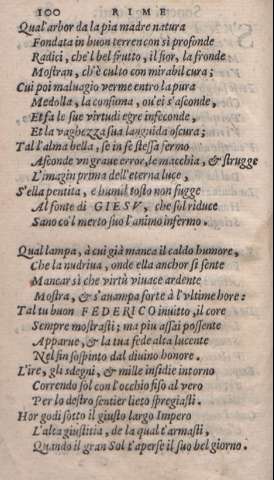 100 RIME
Qual'arbor da la pia madre natura
Fondata in buon terren con sì profonde
Radici, che'l bel frutto, il fior, la fronde
Mostran, ch'è culto con mirabil cura;
Cui poi maluagio verme entro la pura
Medolla, la consuma, ou'ei s'asconde,
Et fa le sue virtudi egre infeconde,
Et la vaghezza sua languida oscura;
Tal l'alma bella, se in se stessa fermo
Asconde vn graue error, le macchia, & strugge
L'imagin prima dell'eterna luce,
S'ella pentita, e humil tosto non fugge
Al fonte di GIESV, che sol riduce
Sano co'l merto suo l'animo infermo.
Qual lampa, à cui già manca il caldo humore,
Che la nudriua, onde ella anchor si sente
Mancar sì che virtù viuace ardente
Mostra, & s'auampa forte à l'vltime hore:
Tal tu buon FEDERICO inuitto, il core
Sempre mostrasti; ma piu assai possente
Apparue, & la tua fede alta lucente
Nel fin sospinto dal diuino honore.
L'ire, gli sdegni, & mille insidie intorno
Correndo sol con l'occhio fiso al vero
Per lo destro sentier lieto spregiasti.
Hor godi sotto il giusto largo Impero
L'alta giustitia, de la qual t'armasti,
Quando il gran Sol t'aperse il suo bel giorno.